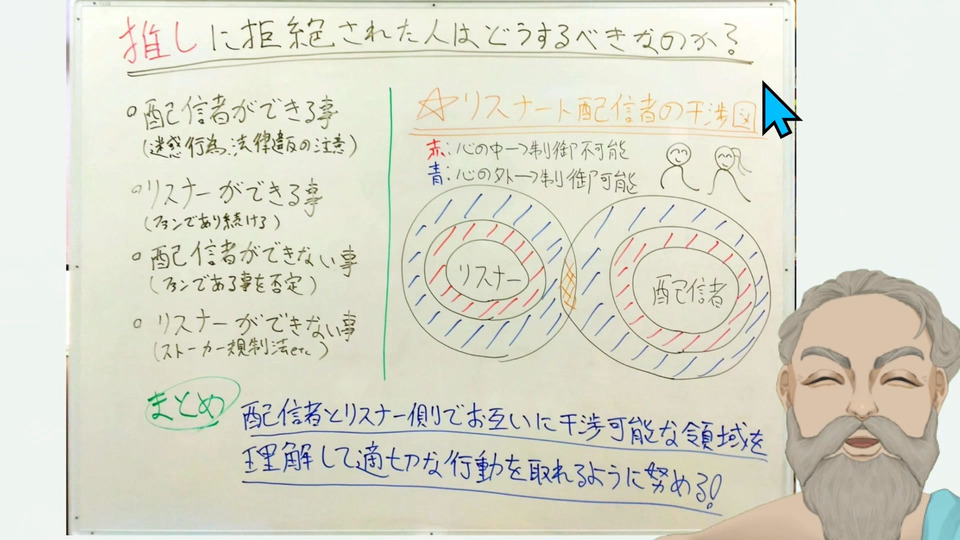 推しに拒絶された人はどうするべきなのか?
○配信者ができる事
(迷惑行為、法律違反の注意)
○リスナーができる事
(ファンであり続ける)
○配信者ができない事
(ファンである事を否定)
○リスナーができない事
(ストーカー規制法etc)
☆リスナート配信者の干渉図
赤:心の中→制御不可能
青:心の外→制御可能
リスナー
配信者
まとめ
配信者とリスナー側でお互いに干渉可能な領域を
理解して適切な行動を取れるように努める!